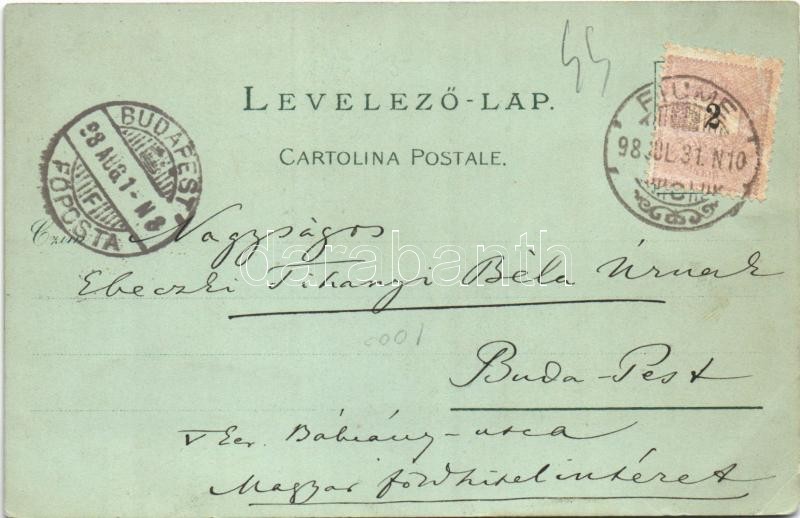 LEVELEZŐ-LAP.
CARTOLINA POSTALE.
2
FIUME
98 JUL. 31. N10
BUDAPEST
98 AUG. 1 - N 8
F
FŐPOSTA
darabanth
Czim
Nagyságos
Ebeczki Tihanyi Béla Úrnak
Buda-Pest
V Ker. Báthiány-utca
Magyar földhitelintézet